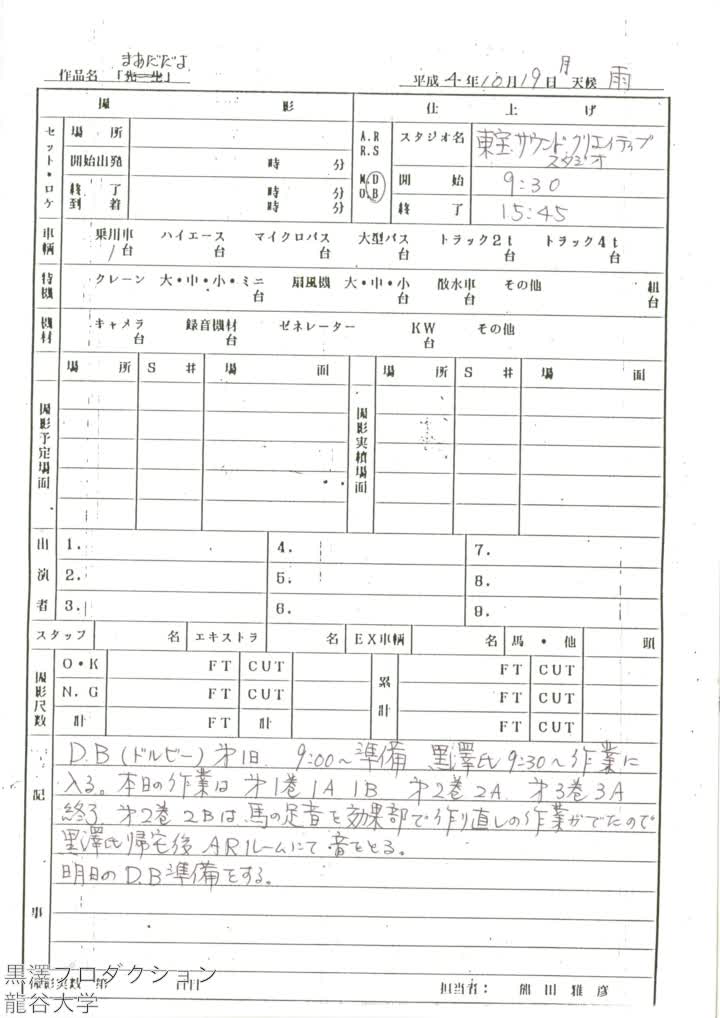 まあだだよ
作品名 「先生」 平成4年10月19日 月 天候 雨
撮 影 仕 上 げ
セット・ロケ 場 所 A.R R.S スタジオ名 東宝サウンド、クリエイティブ
スタジオ
開始出発 時 分 M.O D.B 開 始 9:30
終 了 時 分
到 着 時 分 終 了 15:45
車輌 乗用車 1台 ハイエース 台 マイクロバス 台 大型バス 台 トラック2t 台 トラック4t 台
特機 クレーン 大・中・小・ミニ 台 扇風機 大・中・小 台 散水車 台 その他 組 台
機材 キャメラ 台 録音機材 台 ゼネレーター KW 台 その他
撮影予定場面 場 所 S # 場 面 撮影実績場面 場 所 S # 場 面
出演者 1. 4. 7.
2. 5. 8.
3. 6. 9.
スタッフ 名 エキストラ 名 EX車輌 名 馬・他 頭
撮影尺数 O・K FT CUT 累計 FT CUT
N.G FT CUT FT CUT
計 FT 計 FT CUT
記事
D.B(ドルビー)第1日 9:00〜準備 黒澤氏 9:30〜作業に
入る。本日の作業は 第1巻1A 1B 第2巻2A 第3巻3A
終了。第2巻2Bは馬の足音を効果部で作り直しの作業がでたので
黒澤氏帰宅後 AR1ルームにて音をとる。
明日のD.B準備をする。
撮影実数 第 日目 担当者: 熊田雅彦
黒澤プロダクション
龍谷大学